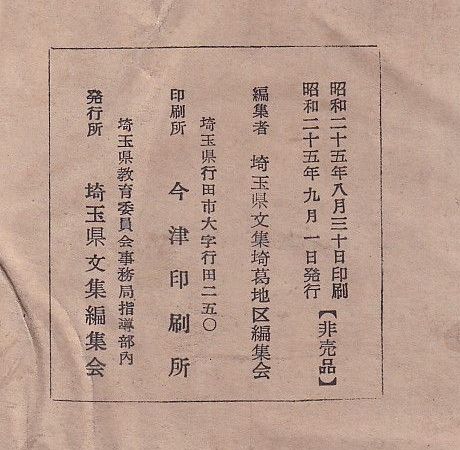 昭和二十五年八月三十日印刷
昭和二十五年九月一日発行
【非売品】
編集者　埼玉県文集埼葛地区編集会
埼玉県行田市大字行田二五〇
印刷所　今津印刷所
埼玉県教育委員会事務局指導部内
発行所　埼玉県文集編集会